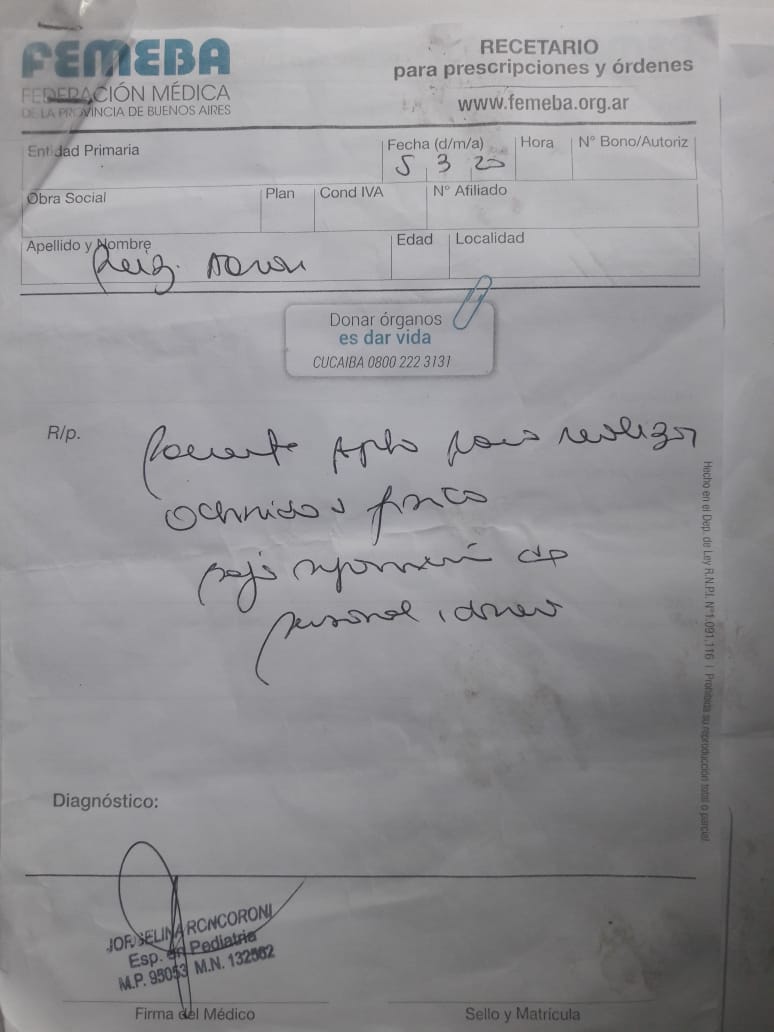 FEMEBA
FEDERACIÓN MÉDICA
DE LA PROVINCIA DE BUENOS AIRES
RECETARIO
para prescripciones y órdenes
www.femeba.org.ar
Entidad Primaria
Fecha (d/m/a)
5 3 20
Hora
N° Bono/Autoriz
Obra Social
Plan
Cond IVA
N° Afiliado
Apellido y Nombre
Edad
Localidad
Donar órganos
es dar vida
CUCAIBA 0800 222 3131
R/p.
paciente apto para realizar
actividad física
bajo supervisión de
personal idoneo
Hecho en el Dep. de Ley R.N.P.I. N° 1.091.116 | Prohibida su reproducción total o parcial
Diagnóstico:
RONCORONI
Esp. en Pediatría
M.P. 95053 M.N. 132562
Firma del Médico
Sello y Matrícula